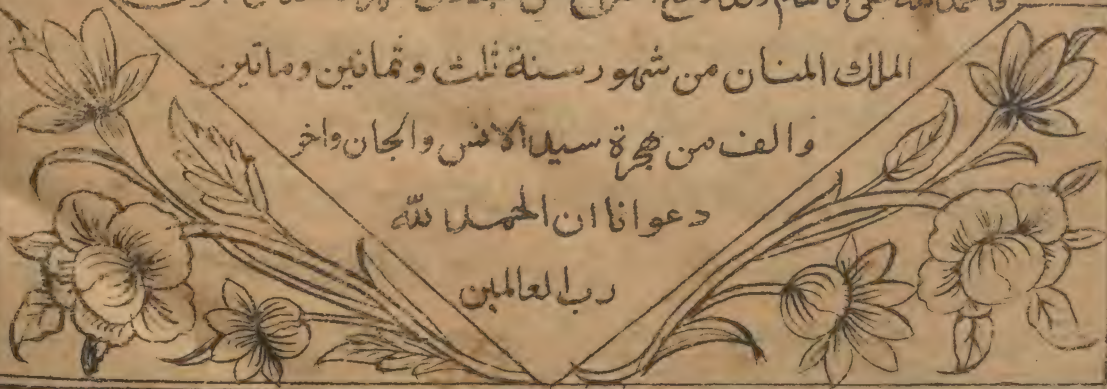 والحمد لله على
الملك المنان من شهور سنة ثلث وثمانين وماتين
والف من هجرة سيد الانس والجان واخر
دعوانا ان الحمد لله
رب العالمين